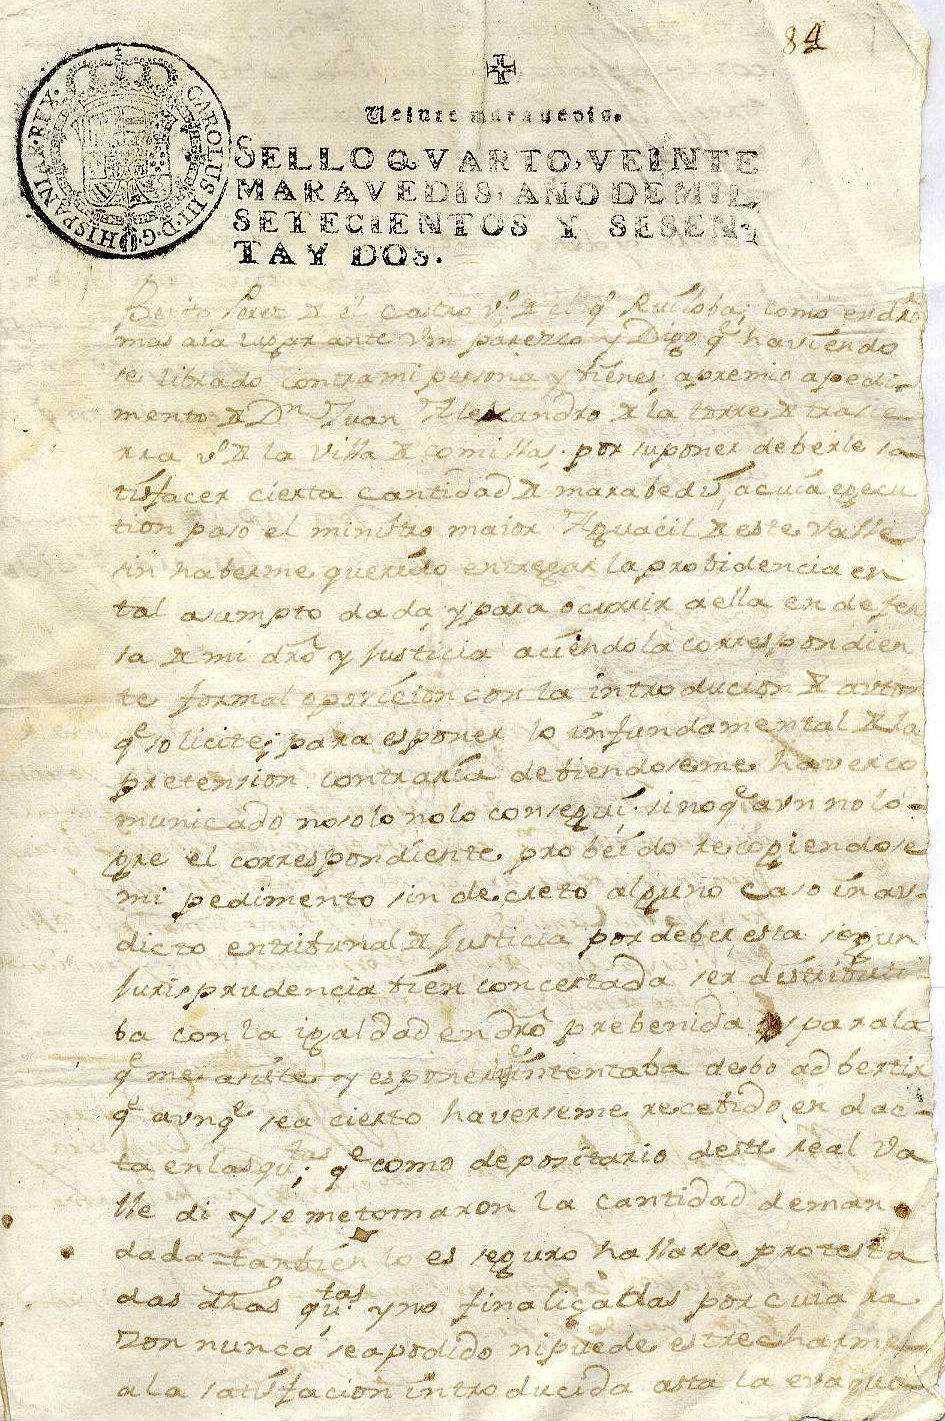 84
HISPANIAR·REX·CAROLUS III·D·G·
Veinte maravedis.
SELLO QVARTO, VEINTE
MARAVEDIS, AÑO DE MIL
SETECIENTOS Y SESEN-
TA Y DOS.
Benito Perez de el Castro vº de el qº Ruiloba; como en dro
mas aia lugar ante Vm parezco y Digo qe haviendo
se librado contra mi persona y bienes apremio a pedi-
mento de Dn Juan Alexandro de la torre de trasie
rra vº de la Villa de comillas. por suponer deberle sa-
tisfacer cierta cantidad de marabedis, a cuia egecu
tion paso el ministro maior Alguacil de este Valle
sin haberme querido entregar la probidencia en
tal asumpto dada; y para ocurrir a ella en defen
sa de mi dro y Justicia aciendo la correspondien
te formal oposicion con la introducion de autos
qe solicite; para esponer lo infundamental de la
pretension contraria debiendoseme haver co
municado no solo no lo consegui. sino qe aun no lo-
gre el correspondiente probeido recogiendose
mi pedimento sin decreto alguno caso inau-
dicto en tribunal de Justicia por deber esta segun
Jurisprudencia bien concertada ser distributi
ba con la igaldad en dro prebenida y para la
qe me asiste y esponer qe intentaba debo adbertir
qe aunqe sea cierto haverseme recebido en dac-
ta en las qutas; qe como depositario deste real Va
lle di y se me tomaron la cantidad deman
dada = tambien lo es seguro hallarse protesta
das dhas qutas y no finaliçadas por cuia ra
zon nunca se a podido ni puede estrecharme
a la satisfacion introducida asta la evaqua-